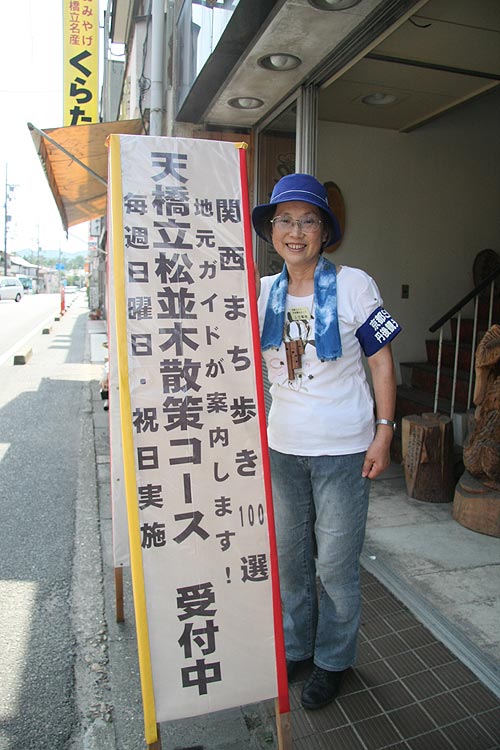 関西まち歩き100選
地元ガイドが案内します!
天橋立松並木散策コース 受付中
毎週日曜日・祝日実施
みやげ
橋立名産
くらた
京都
丹後